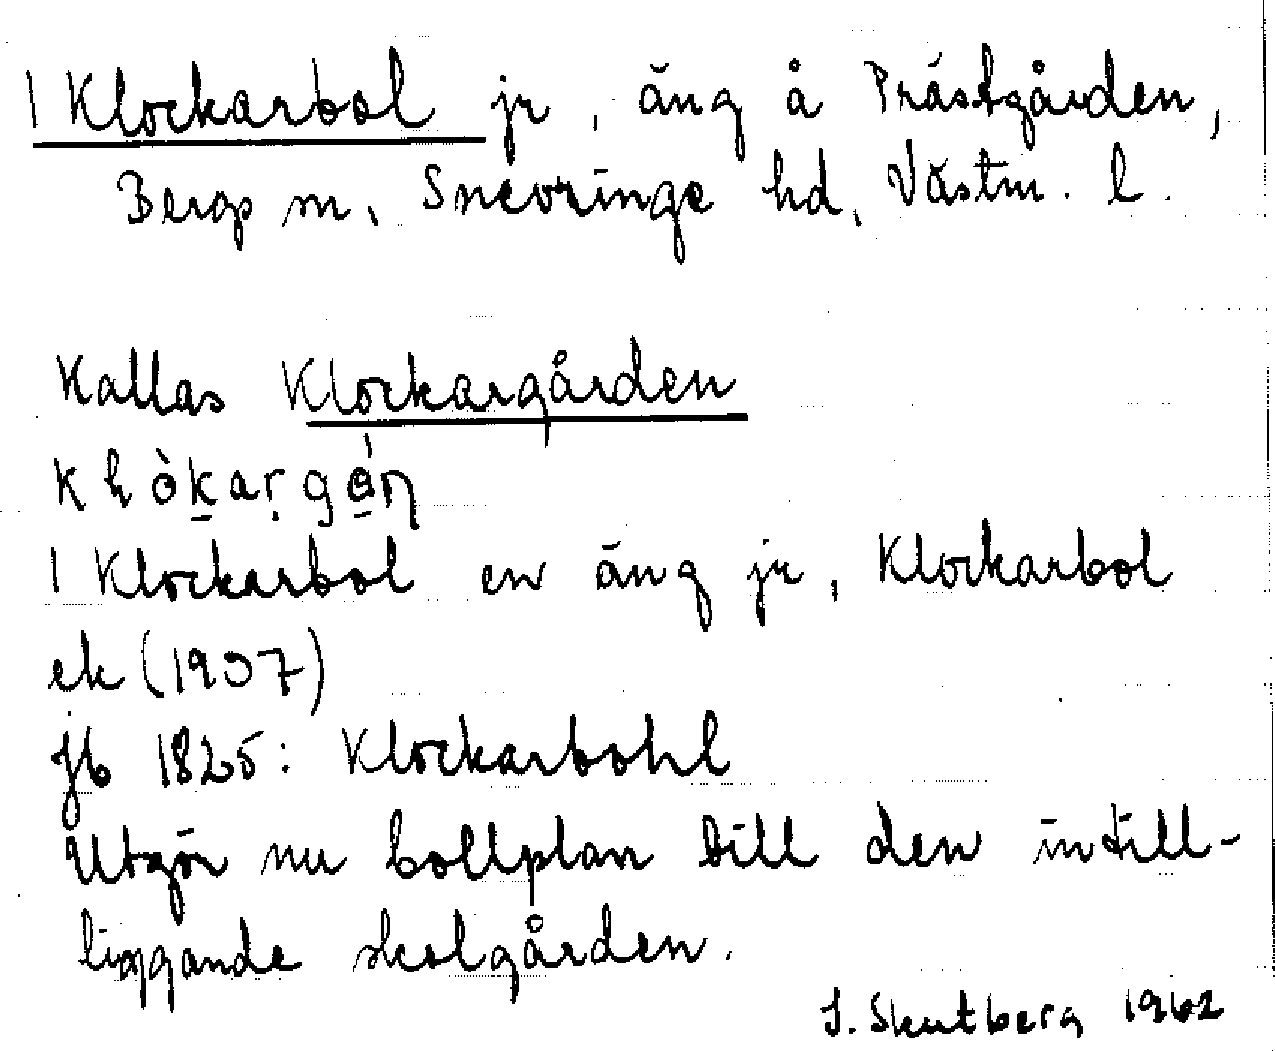 1 Klockarbol jr, äng å Prästgården,
Bergs sn, Snevringe hd, Västm. l.
Kallas Klockargården
1 Klockarbol en äng jr, Klockarbol
ek (1907)
jb 1825: Klockarbohl
Utgör nu bollplan till den intill-
liggande skolgården.
I. Skutberg 1962